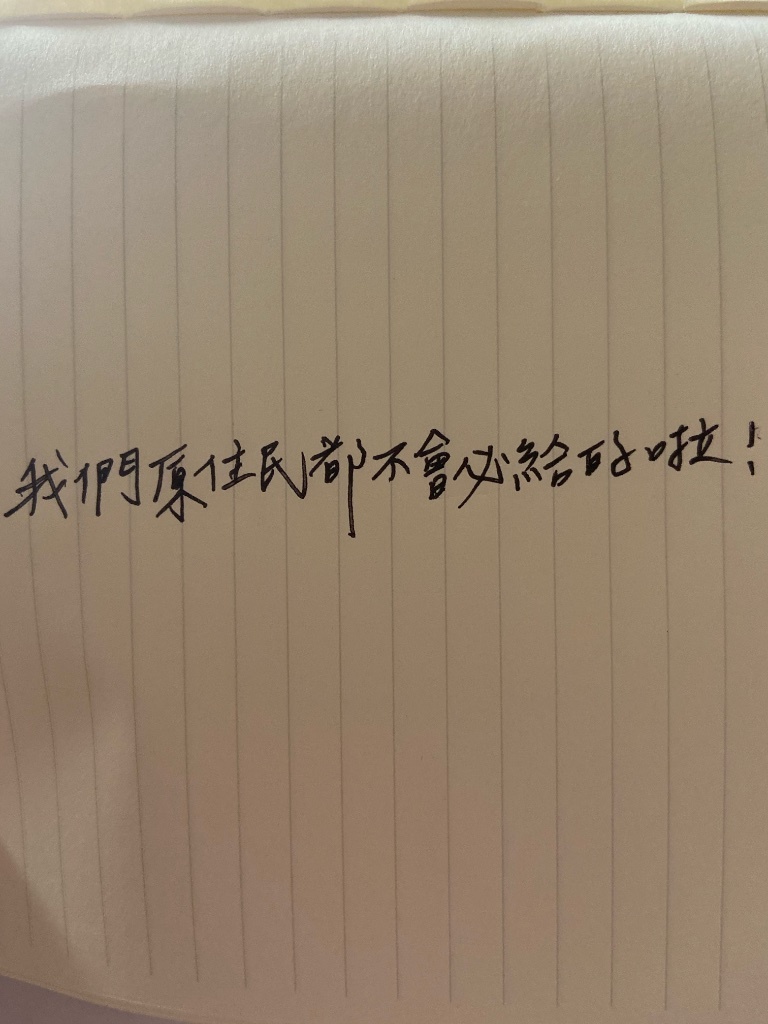 我們原住民都不會必給的啦!